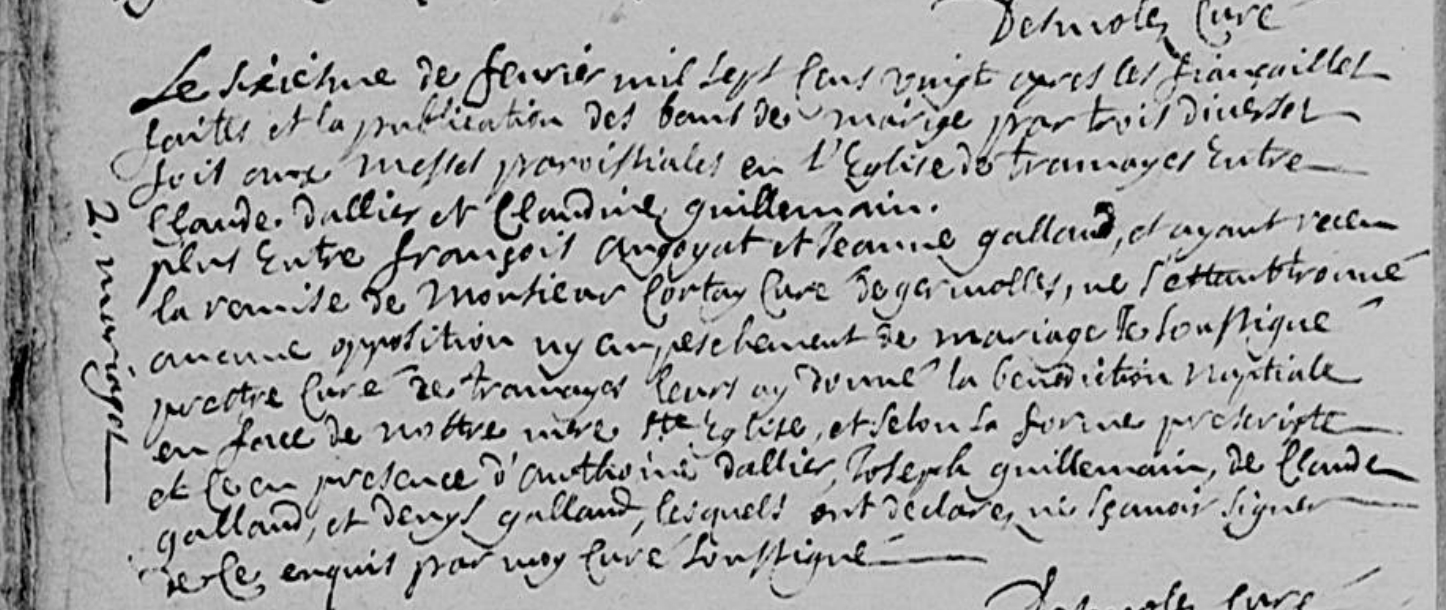 Desmoles Curé
Le sixiesme de feurier mil sept Cens vingt apres les fiançailles
faites et la publication des bans de marige par trois diverses
fois aux Messes paroissiales en l'Eglise de tramayes Entre
Claude dallier et Claudine guillemain.
plus Entre françois augoyat et Jeanne galland, et ayant receu
la remise de Monsieur Cortay Curé de germolles, ne s'estant trouué
aucune opposition ny empeschement de mariage Je soussigné
prestre Curé de tramayes leurs ay donné la benediction nuptiale
en face de nostre mere Ste Eglise, et selon la forme prescripte
et ce en presence d'anthoine dallier, Joseph guillemain, de Claude
galland, et denys galland, lesquels ont declare ne sçauoir signer
de ce enquis par moy Curé soussigné
2. mariages
Desmoles Curé